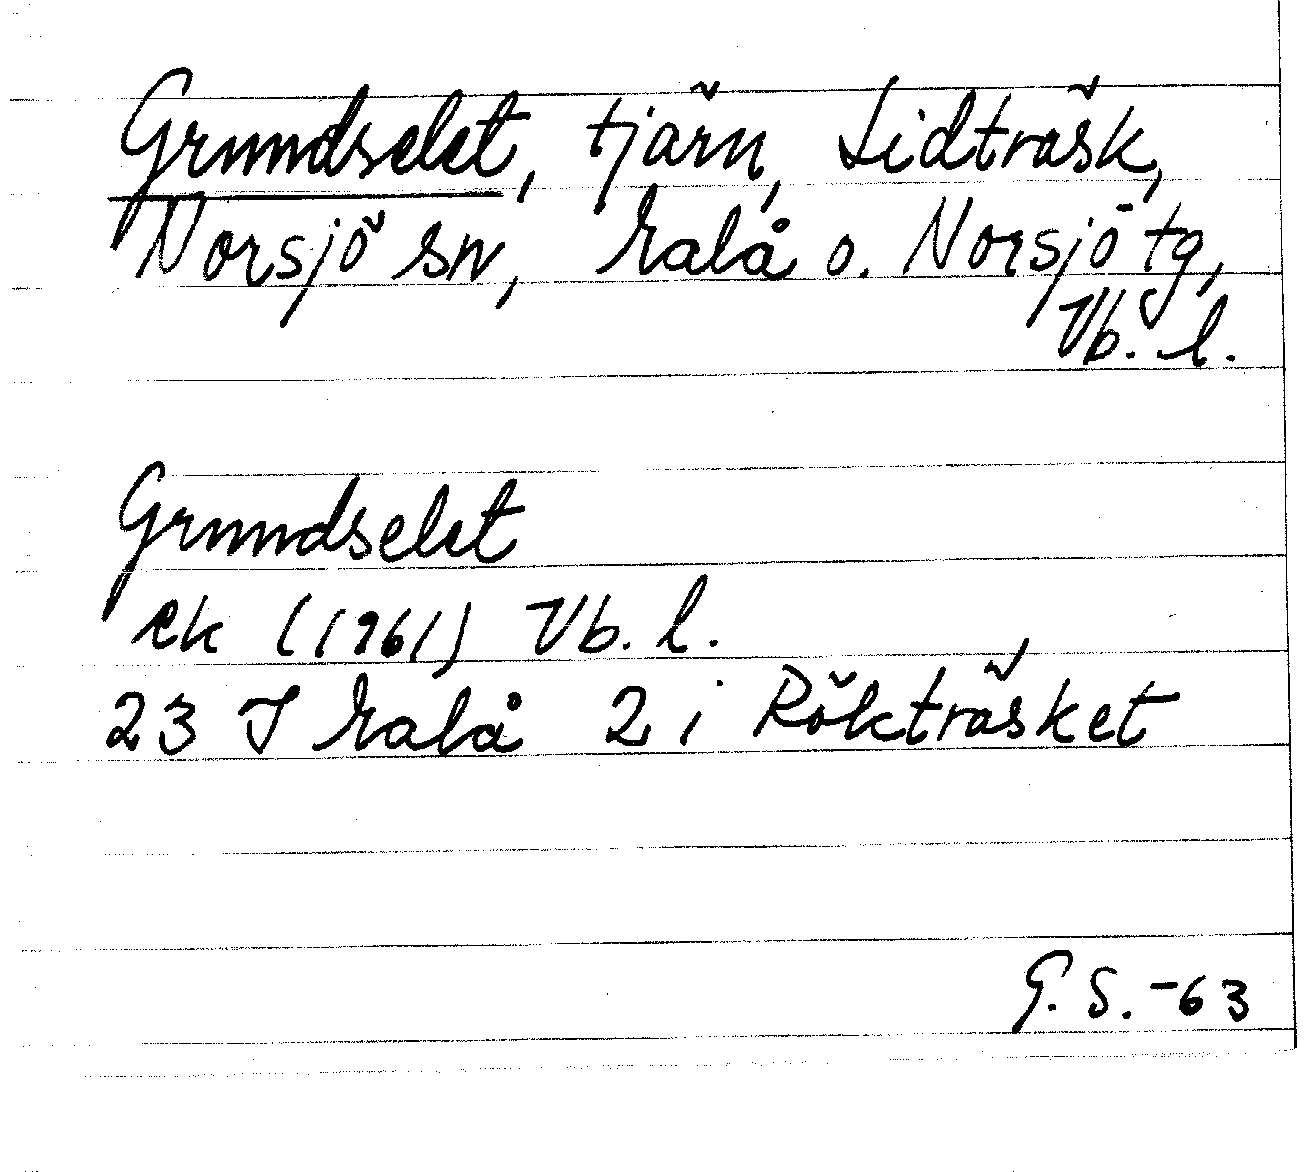 Grundselet, tjärn, Lidträsk,
Norsjö sn, Malå o. Norsjö tg,
Vb. l.
Grundselet
ek (1961) Vb. l.
23 J Malå 2 i Rökträsket
G. S. -63